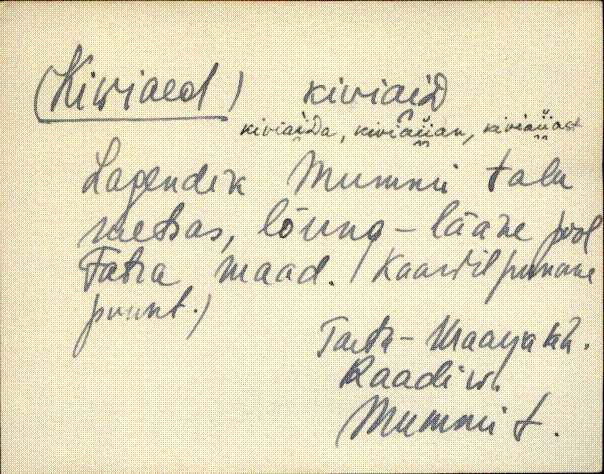 (Kiviaed) kiviaiD
kiviaiDa, kiviaiian, kiviaiiast
Lagendik Mummi talu
metsas, lõuna-lääne pool
Tatra maad. (Kaardil punane
punkt.)
Tartu-Maarja kh.
Raadi w.
Mummi t.